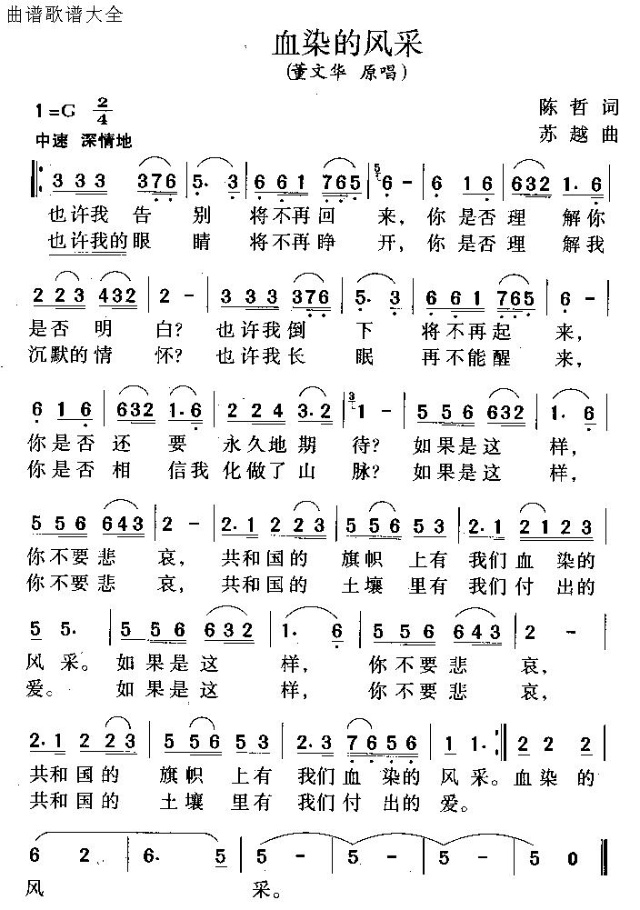 曲谱歌谱大全
血染的风采
(董文华 原唱)
1=G 2/4
陈哲 词
中速 深情地
苏越 曲
3 3 3 376 | 5. 3 | 6 6 1 765 | 5 6 - | 6 1 6 | 632 1. 6 |
也许我 告 别 将不再回 来, 你是否理 解你
也许我的眼 睛 将不再睁 开, 你是否理 解我
2 2 3 432 | 2 - | 3 3 3 376 | 5. 3 | 6 6 1 765 | 6 - |
是否 明 白? 也许我倒 下 将不再起 来,
沉默的情 怀? 也许我长 眠 再不能醒 来,
6 1 6 | 632 1. 6 | 2 2 4 3.2 | 3 1 - | 5 5 6 632 | 1. 6 |
你是否 还 要 永久地期 待? 如果是这 样,
你是否 相 信我 化做了山 脉? 如果是这 样,
5 5 6 643 | 2 - | 2. 1 2 23 | 5 56 5 3 | 2. 1 2123 |
你不要悲 哀, 共和国的 旗帜 上有 我们血染的
你不要悲 哀, 共和国的 土壤 里有 我们付出的
5 5. | 5 5 6 632 | 1. 6 | 5 5 6 643 | 2 - |
风采。如果是这 样, 你不要悲 哀,
爱。 如果是这 样, 你不要悲 哀,
2. 1 2 23 | 5 56 5 3 | 2. 3 7656 | 1 1. :| 2 2 2 |
共和国的 旗帜 上有 我们血染的 风采。血染的
共和国的 土壤 里有 我们付出的 爱。
6 2 | 6. 5 | 5 - | 5 - | 5 - | 5 0 ‖
风 采。